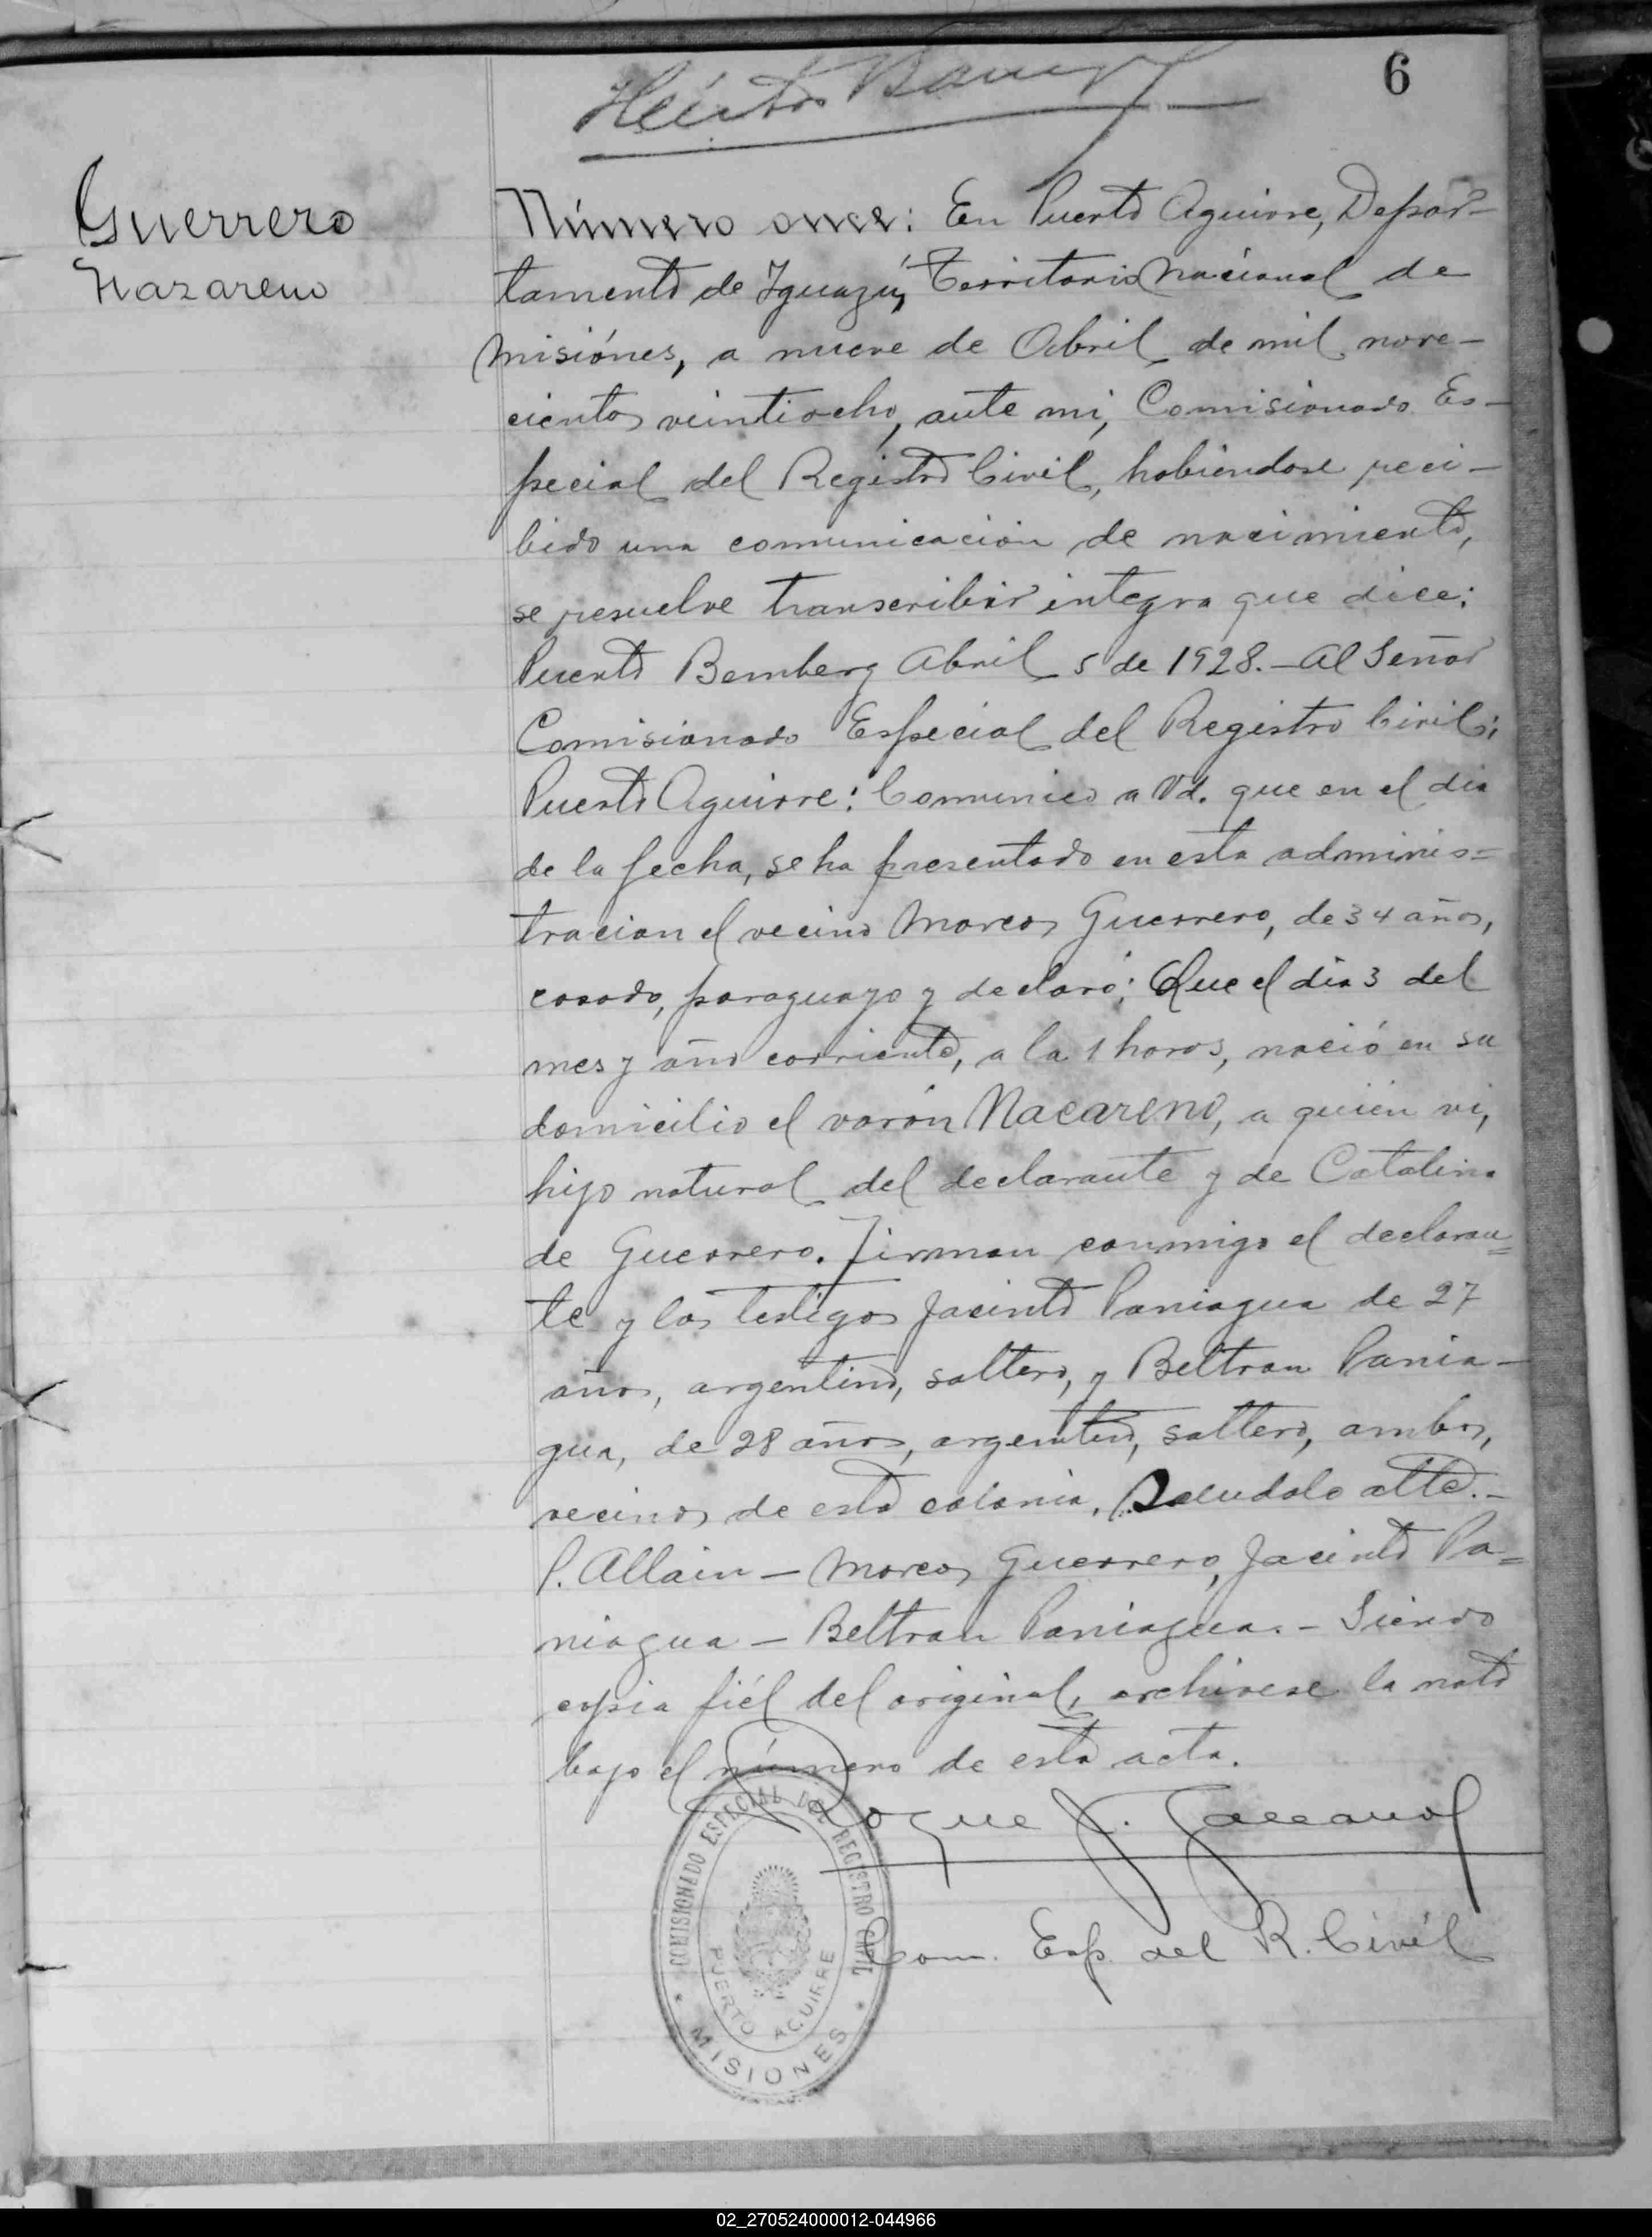 6
Guerrero
Nazareno
Número once: En Puerto Aguirre, Depar-
tamento de Iguazú, Territorio Nacional de
Misiónes, a nueve de Abril de mil nove-
cientos veintiocho, ante mi, Comisionado Es-
pecial del Registro Civil, habiendose reci-
bido una comunicación de nacimiento,
se resuelve transcribir integra que dice:
Puerto Bemberg Abril 5 de 1928.-Al Señor
Comisionado Especial del Registro Civil;
Puerto Aguirre: Comunico a Vd. que en el dia
de la fecha, se ha presentado en esta adminis=
tracion el vecino Marcos Guerrero, de 34 años,
casado, paraguayo y declaró: Que el dia 3 del
mes y año corriente, a la 1 horas, nació en su
domicilio el varón Nacareno, a quién vi,
hijo natural del declarante y de Catalina
de Guerrero. Firman conmigo el declaran=
te y los testigos Jacinto Paniagua de 27
años, argentino, soltero, y Beltran Pania-
gua, de 28 años, argentino, soltero, ambos,
vecinos de esta colonia. Saludalo atte.-
P. Allain - Marcos Guerrero, Jacinto Pa=
niagua - Beltran Paniagua. - Siendo
copia fiél del original, archivese la nota
bajo el número de esta acta.
Roque J.
Com. Esp. del R. Civil
COMISIONADO ESPECIAL DEL REGISTRO CIVIL
PUERTO AGUIRRE
* MISIONES *
02_270524000012-044966